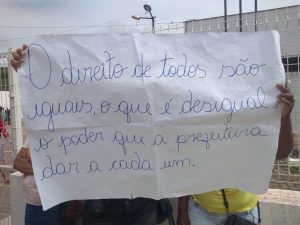 O direito de todos são
iguais, o que é desigual
o poder que a prefeitura
dar a cada um.